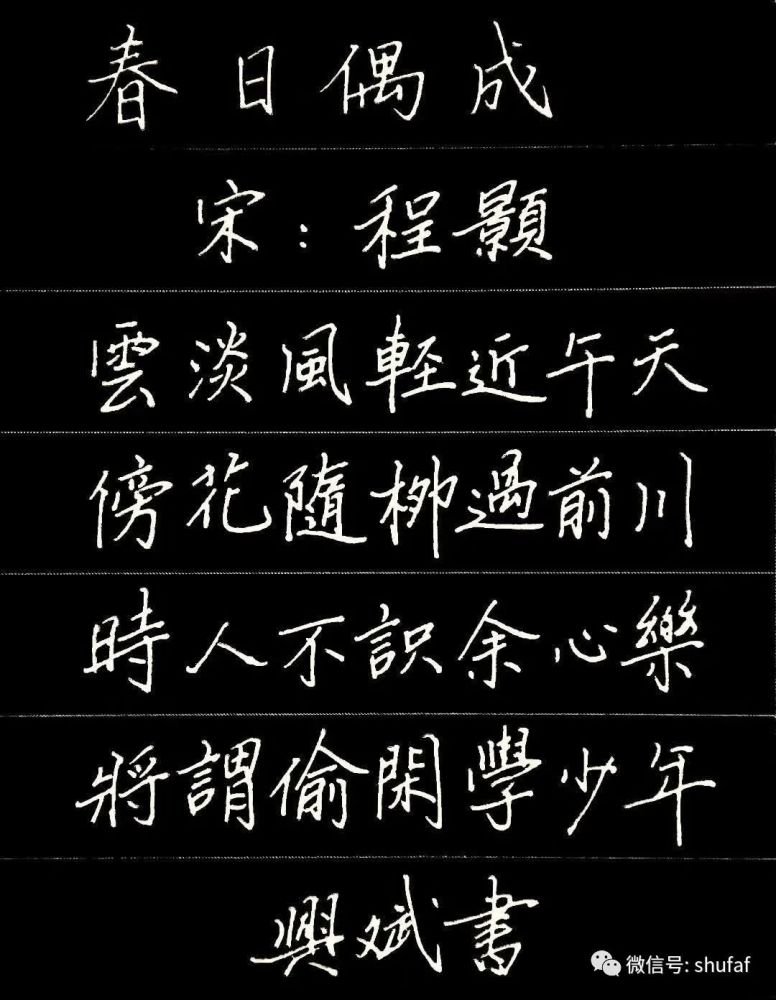 春日偶成
宋:程顥
雲淡風輕近午天
傍花隨柳過前川
時人不識余心樂
將謂偷閑學少年
興斌書
微信号: shufaf